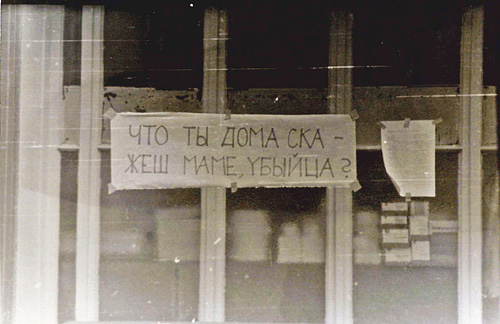 ЧТО ТЫ ДОМА СКА -
ЖЕШ МАМЕ, УБЫЙЦА?